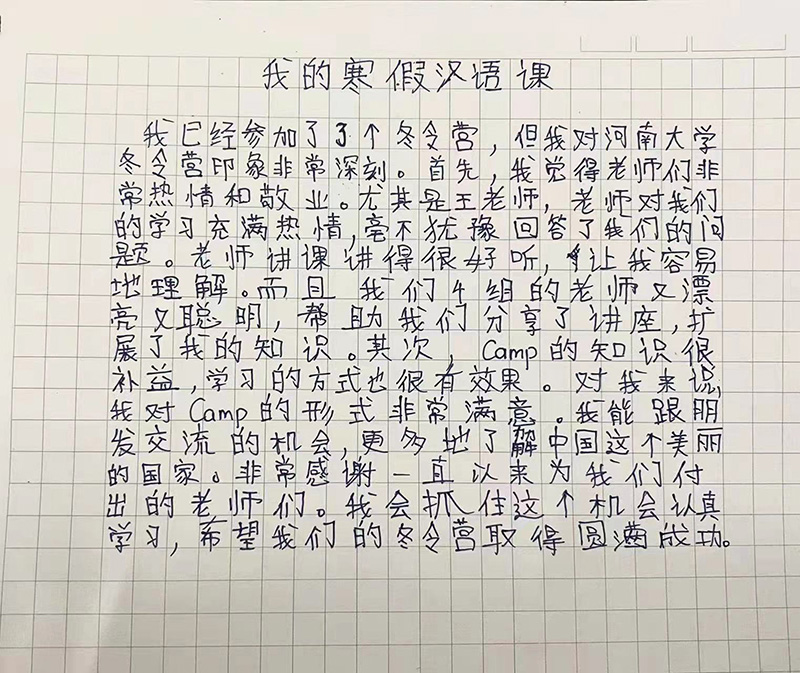 我的寒假汉语课
我已经参加了3个冬令营，但我对河南大学
冬令营印象非常深刻。首先，我觉得老师们非
常热情和敬业。尤其是王老师，老师对我们
的学习充满热情，毫不犹豫回答了我们的问
题。老师讲课讲得很好听，让我容易
地理解。而且我们4组的老师又漂
亮又聪明，帮助我们分享了讲座，扩
展了我的知识。其次，Camp的知识很
补益，学习的方式也很有效果。对我来说，
我对Camp的形式非常满意。我能跟朋
发交流的机会，更多地了解中国这个美丽
的国家。非常感谢一直以来为我们付
出的老师们。我会抓住这个机会认真
学习，希望我们的冬令营取得圆满成功。